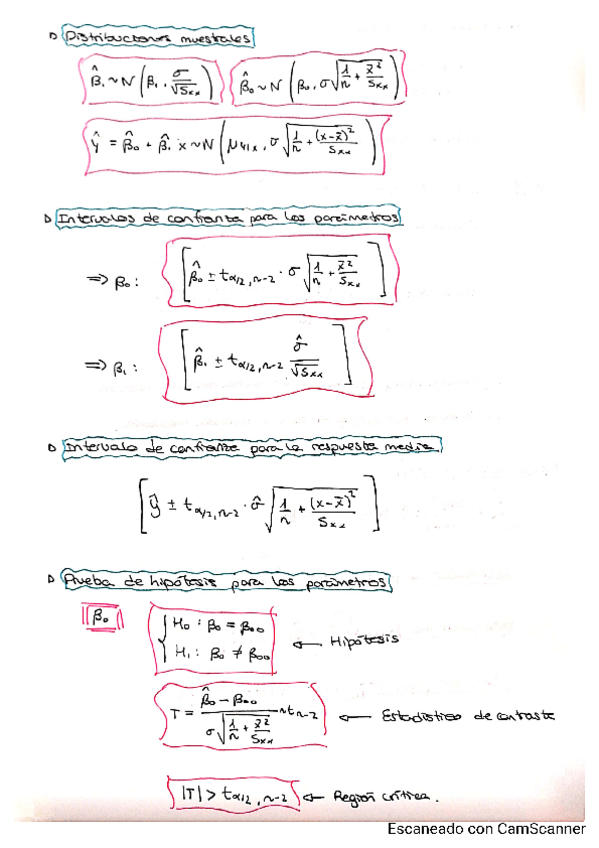 ▷ Distribuciones muestrales
β̂₁ ~ N(β₁, σ/√Sxx)  β̂₀ ~ N(β₀, σ√(1/n + x̄²/Sxx))
ŷ = β̂₀ + β̂₁ x ~ N(μ_{Y|x}, σ√(1/n + (x-x̄)²/Sxx))
▷ Intervalos de confianza para los parámetros
⇒ β₀: [β̂₀ ± t_{α/2, n-2} · σ√(1/n + x̄²/Sxx)]
⇒ β₁: [β̂₁ ± t_{α/2, n-2} σ̂/√Sxx]
▷ Intervalo de confianza para la respuesta media
[ŷ ± t_{α/2, n-2} · σ̂√(1/n + (x-x̄)²/Sxx)]
▷ Prueba de hipótesis para los parámetros
β₀ { H₀: β₀ = β₀₀
H₁: β₀ ≠ β₀₀ ← Hipótesis
T = (β̂₀ - β₀₀)/(σ√(1/n + x̄²/Sxx)) ~ t_{n-2} ← Estadístico de contraste
|T| > t_{α/2, n-2} ← Región crítica.
Escaneado con CamScanner